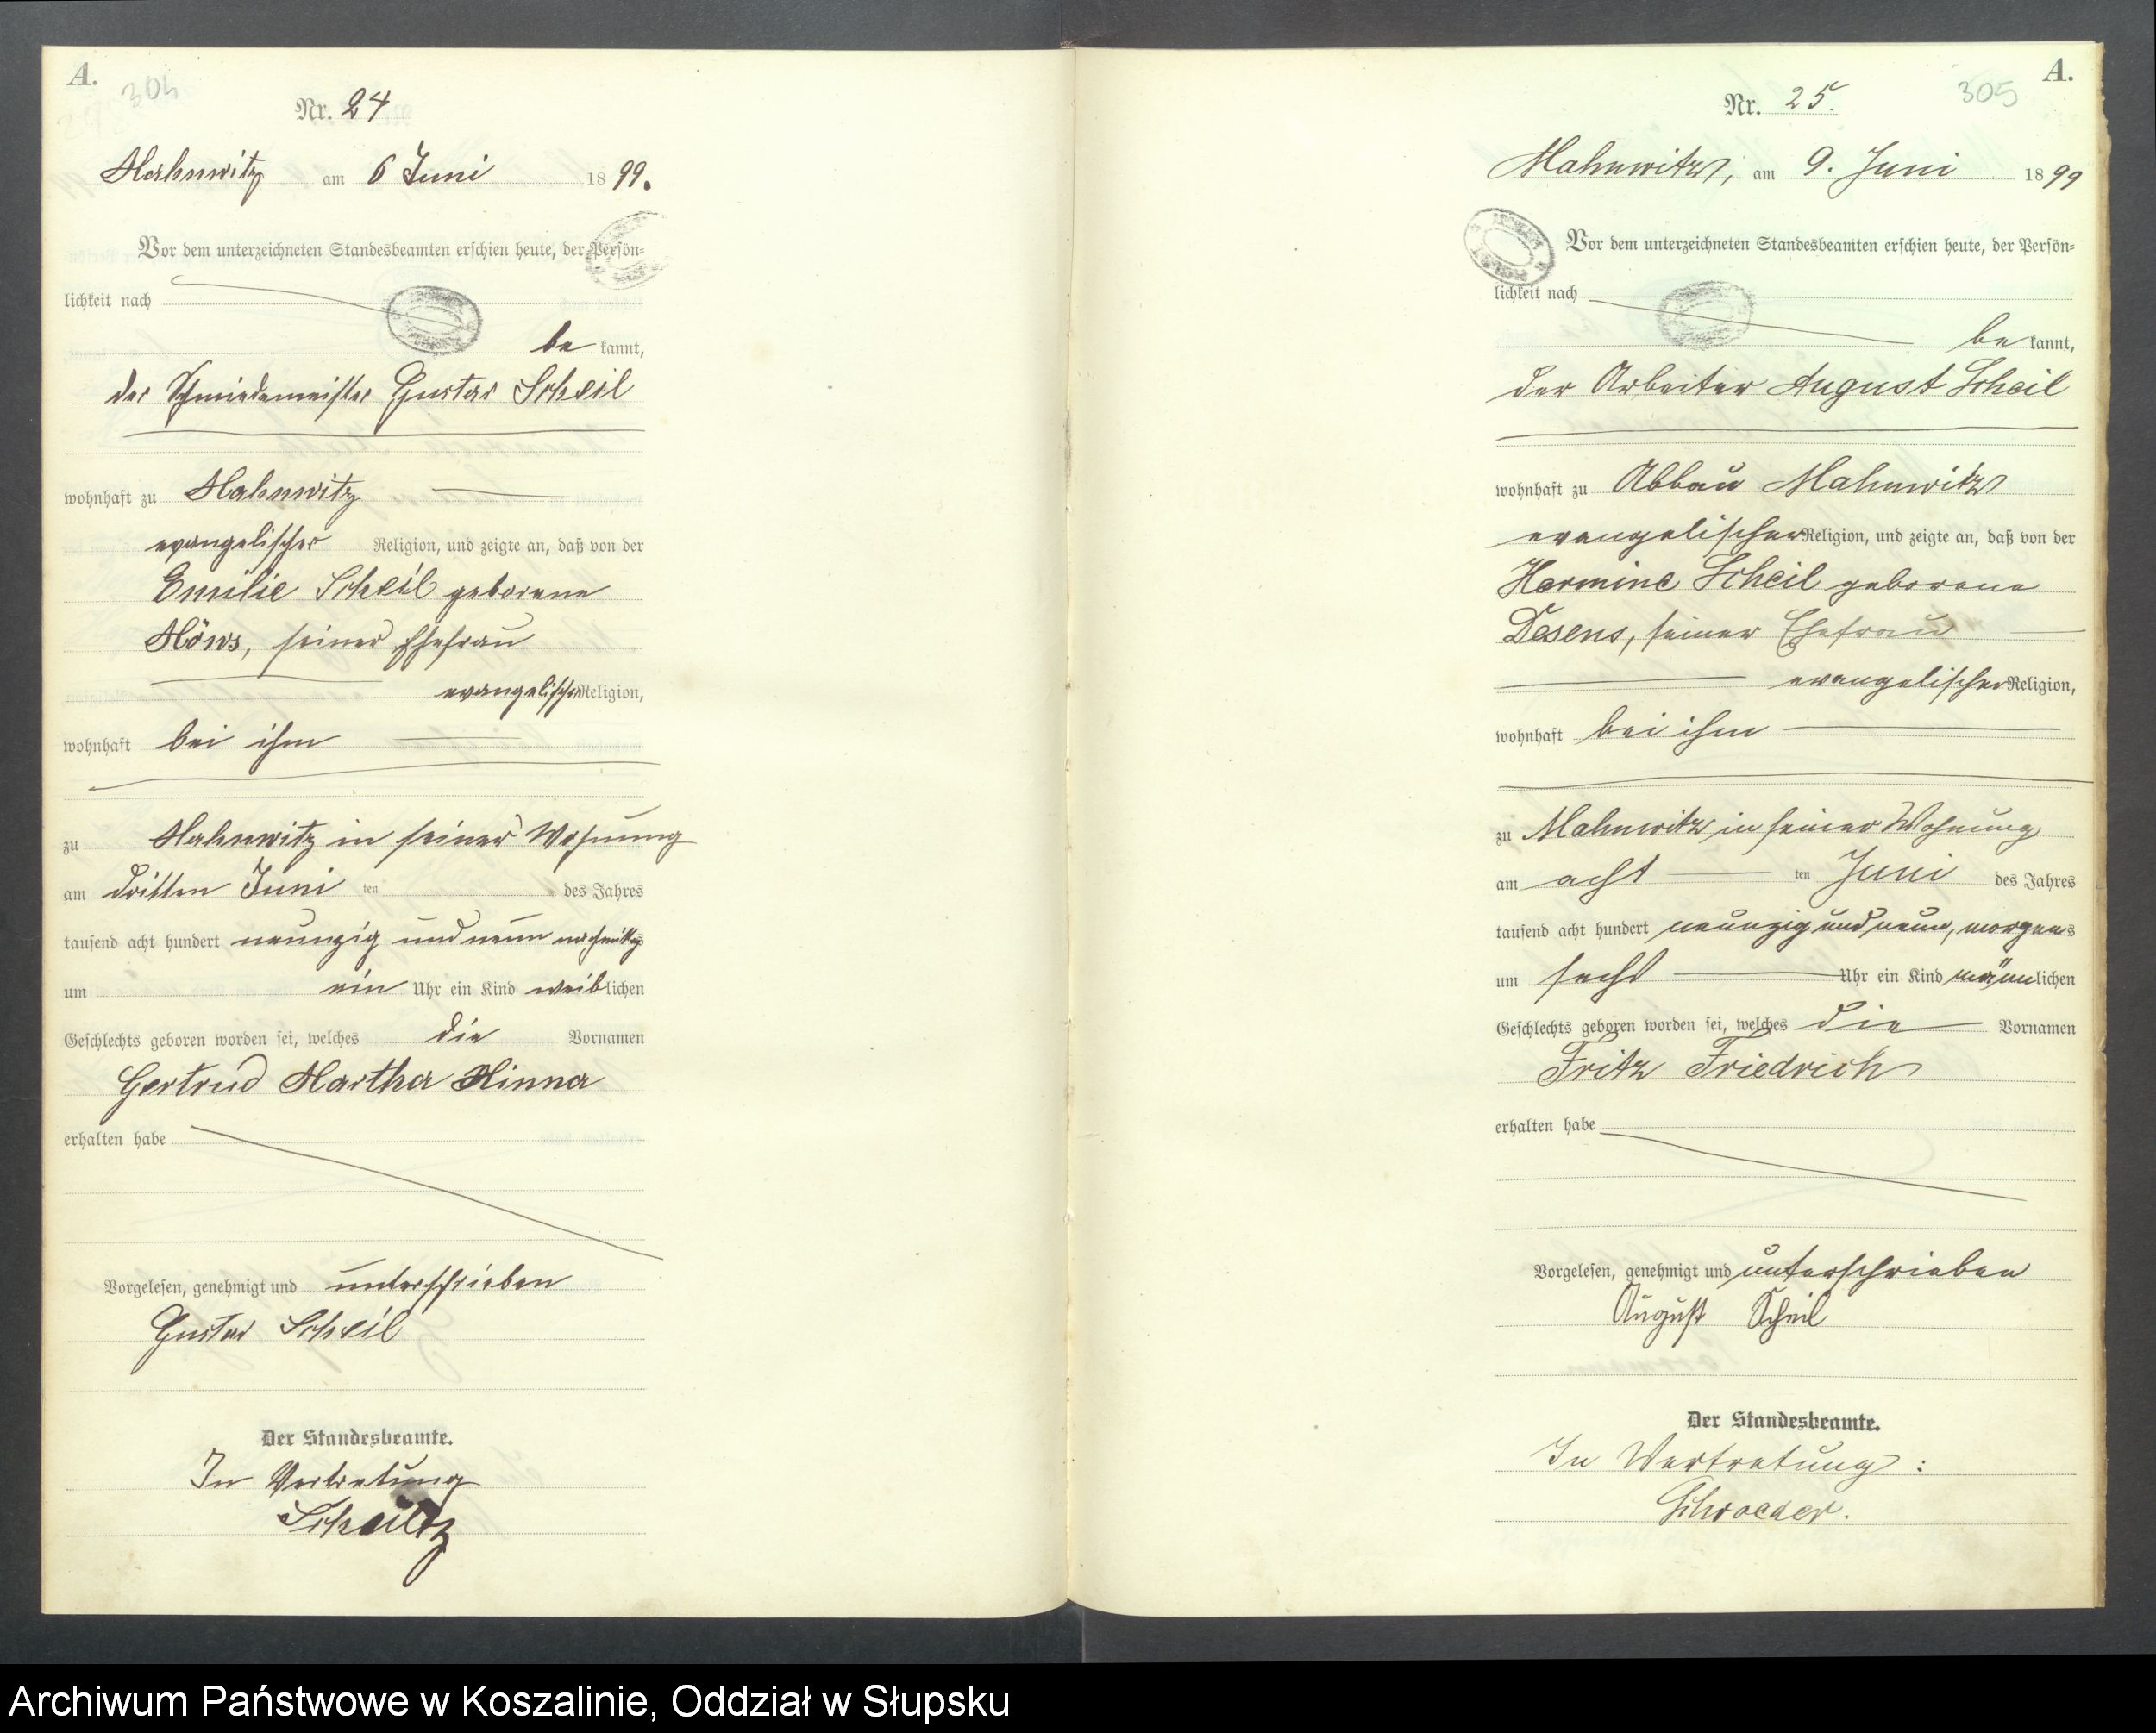 A.
304
Nr. 24
Mahnwitz am 6 Juni 1899.
Vor dem unterzeichneten Standesbeamten erschien heute, der Persön-
lichkeit nach
be kannt,
der Schmiedemeister Gustav Scheil
wohnhaft zu Mahnwitz
evangelischer Religion, und zeigte an, daß von der
Emilie Scheil geborene
Möws, seiner Ehefrau
evangelischer Religion,
wohnhaft bei ihm
zu Mahnwitz in seiner Wohnung
am dritten Juni ten des Jahres
tausend acht hundert neunzig und neun nachmittags
um ein Uhr ein Kind weiblichen
Geschlechts geboren worden sei, welches die Vornamen
Gertrud Martha Minna
erhalten habe
Vorgelesen, genehmigt und unterschrieben
Gustav Scheil
Der Standesbeamte.
In Vertretung
A.
305
Nr. 25.
Mahnwitz, am 9. Juni 1899
Vor dem unterzeichneten Standesbeamten erschien heute, der Persön-
lichkeit nach
be kannt,
der Arbeiter August Scheil
wohnhaft zu Abbau Mahnwitz
evangelischer Religion, und zeigte an, daß von der
Hermine Scheil geborene
Desens, seiner Ehefrau
evangelischer Religion,
wohnhaft bei ihm
zu Mahnwitz in seiner Wohnung
am acht ten Juni des Jahres
tausend acht hundert neunzig und neun, morgens
um sechs Uhr ein Kind männlichen
Geschlechts geboren worden sei, welches die Vornamen
Fritz Friedrich
erhalten habe
Vorgelesen, genehmigt und unterschrieben
August Scheil
Der Standesbeamte.
In Vertretung:
Schroeder.
Archiwum Państwowe w Koszalinie, Oddział w Słupsku